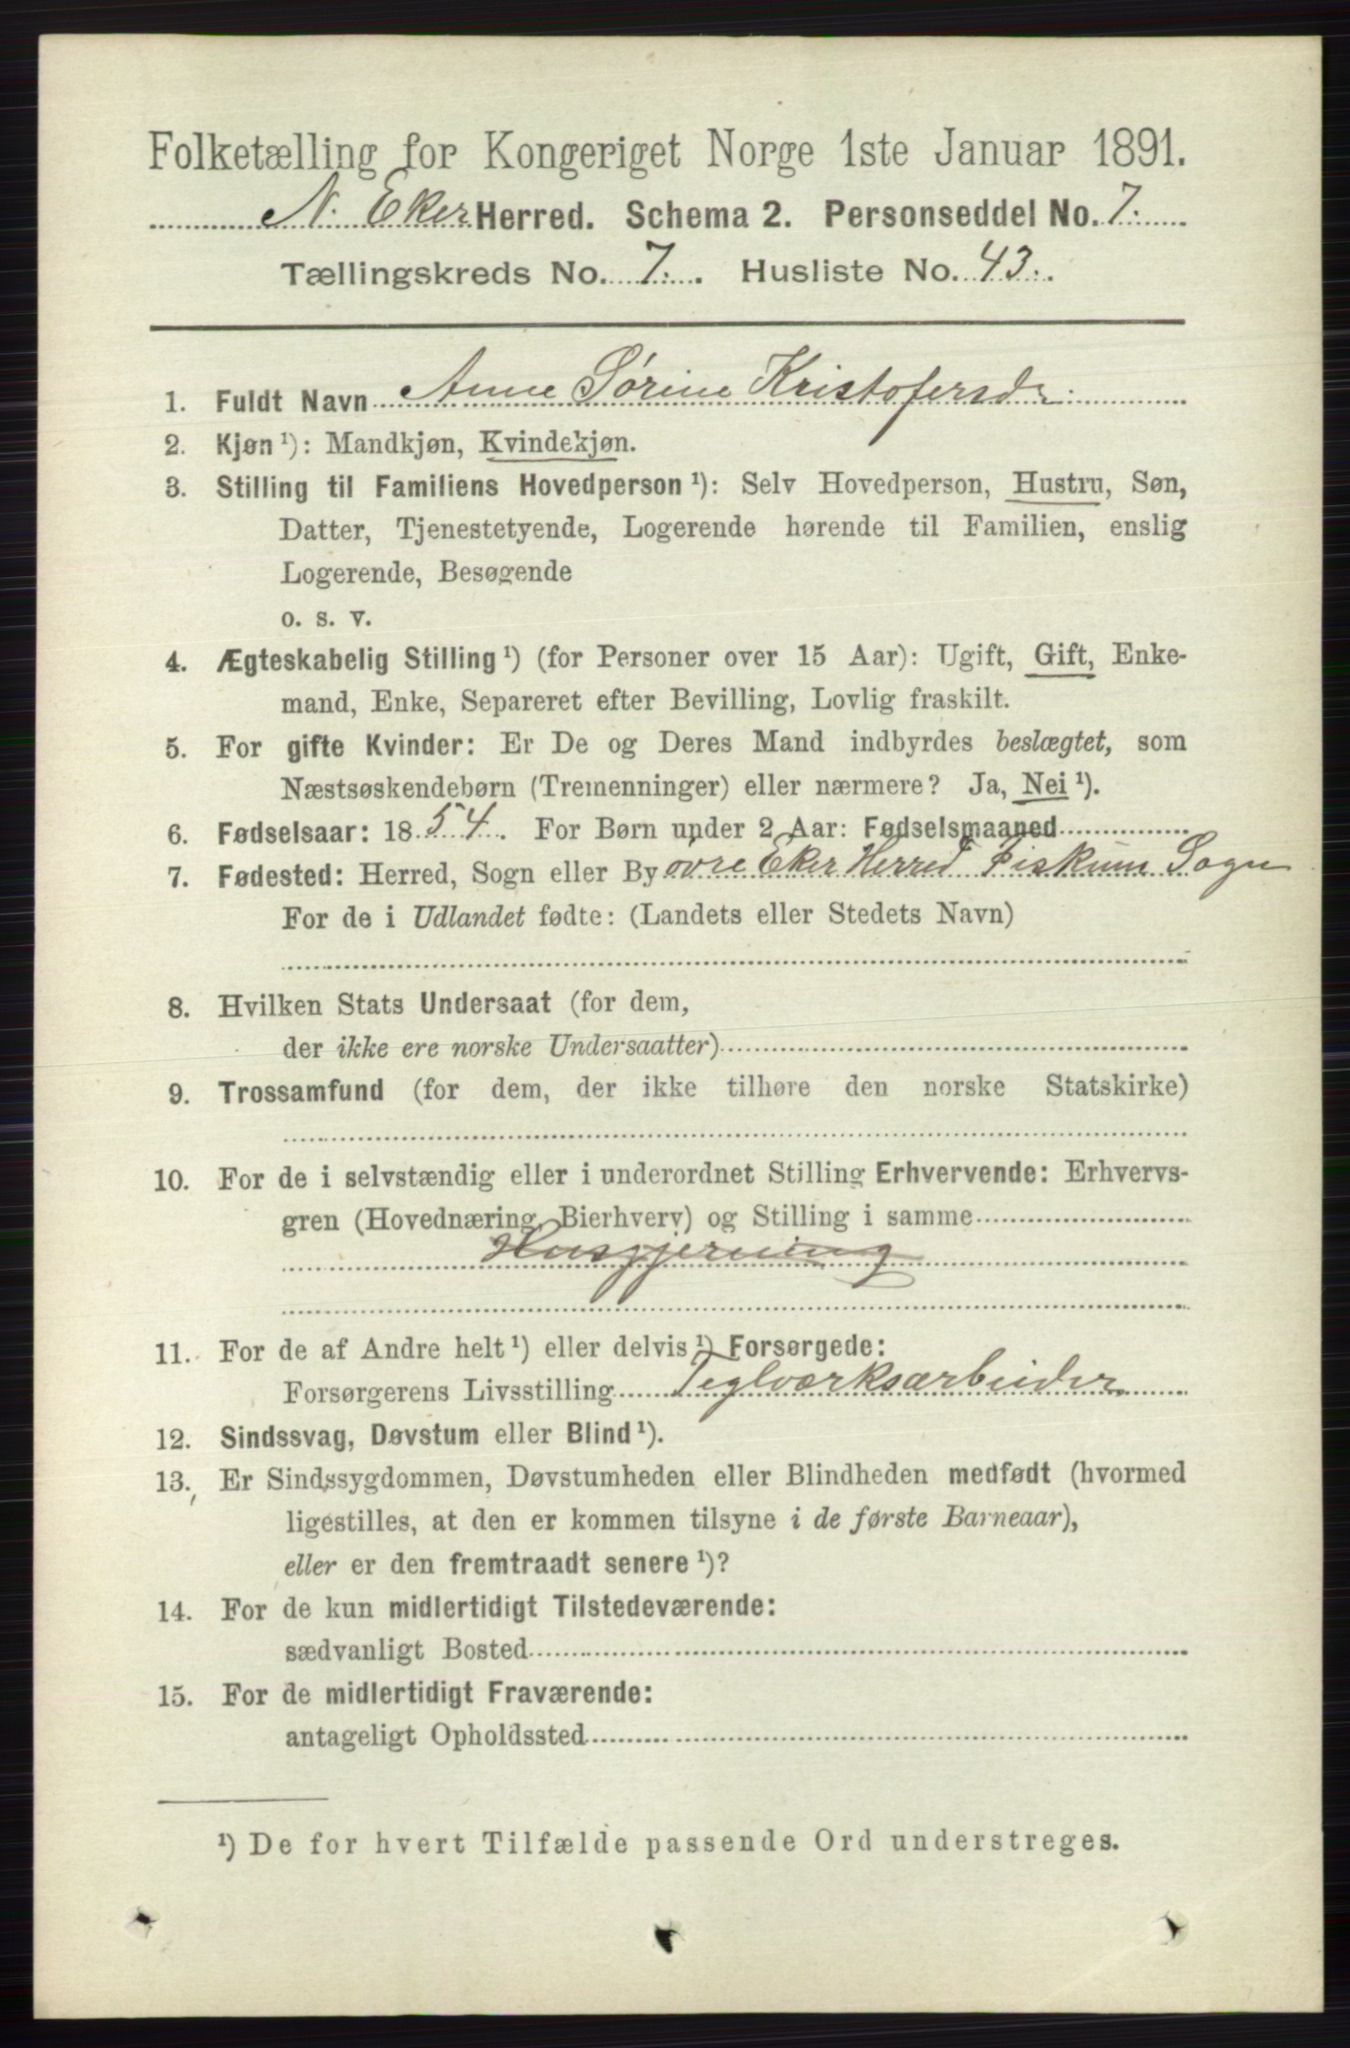 Folketælling for Kongeriget Norge 1ste Januar 1891.
N. Eker Herred. Schema 2. Personseddel No. 7.
Tællingskreds No. 7. Husliste No. 43.
1. Fuldt Navn Anne Sørine Kristofersdr.
2. Kjøn ¹): Mandkjøn, Kvindekjøn.
3. Stilling til Familiens Hovedperson ¹): Selv Hovedperson, Hustru, Søn,
Datter, Tjenestetyende, Logerende hørende til Familien, enslig
Logerende, Besøgende
o. s. v.
4. Ægteskabelig Stilling ¹) (for Personer over 15 Aar): Ugift, Gift, Enke-
mand, Enke, Separeret efter Bevilling, Lovlig fraskilt.
5. For gifte Kvinder: Er De og Deres Mand indbyrdes beslægtet, som
Næstsøskendebørn (Tremenninger) eller nærmere? Ja, Nei ¹).
6. Fødselsaar: 1854. For Børn under 2 Aar: Fødselsmaaned
7. Fødested: Herred, Sogn eller By øvre Eker Herred Fiskum Sogn
For de i Udlandet fødte: (Landets eller Stedets Navn)
8. Hvilken Stats Undersaat (for dem,
der ikke ere norske Undersaatter)
9. Trossamfund (for dem, der ikke tilhøre den norske Statskirke)
10. For de i selvstændig eller i underordnet Stilling Erhvervende: Erhvervs-
gren (Hovednæring, Bierhverv) og Stilling i samme
Husgjerning
11. For de af Andre helt ¹) eller delvis ¹) Forsørgede:
Forsørgerens Livsstilling Teglværksarbeider
12. Sindssvag, Døvstum eller Blind ¹).
13. Er Sindssygdommen, Døvstumheden eller Blindheden medfødt (hvormed
ligestilles, at den er kommen tilsyne i de første Barneaar),
eller er den fremtraadt senere ¹)?
14. For de kun midlertidigt Tilstedeværende:
sædvanligt Bosted
15. For de midlertidigt Fraværende:
antageligt Opholdssted
¹) De for hvert Tilfælde passende Ord understreges.